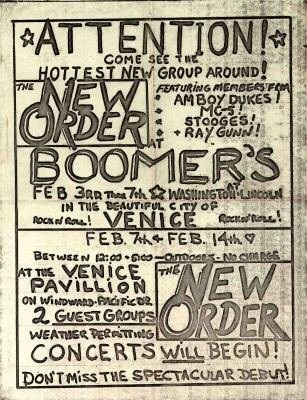 ATTENTION!
COME SEE THE
HOTTEST NEW GROUP AROUND!
THE NEW ORDER
FEATURING MEMBERS FROM
AMBOY DUKES!
MC-5!
STOOGES!
+ RAY GUNN!
AT
BOOMER'S
FEB 3RD THRU 7TH ☆ WASHINGTON AT LINCOLN
IN THE BEAUTIFUL CITY OF
ROCK N' ROLL! VENICE ROCK N' ROLL!
FEB. 7th & FEB. 14th ♡
BETWEEN 12:00 & 5:00 - OUTDOORS - NO CHARGE
AT THE VENICE
PAVILLION
ON WINDWARD - PACIFIC DR.
2 GUEST GROUPS
WEATHER PERMITTING
THE NEW ORDER
CONCERTS WILL BEGIN!
DON'T MISS THE SPECTACULAR DEBUT!